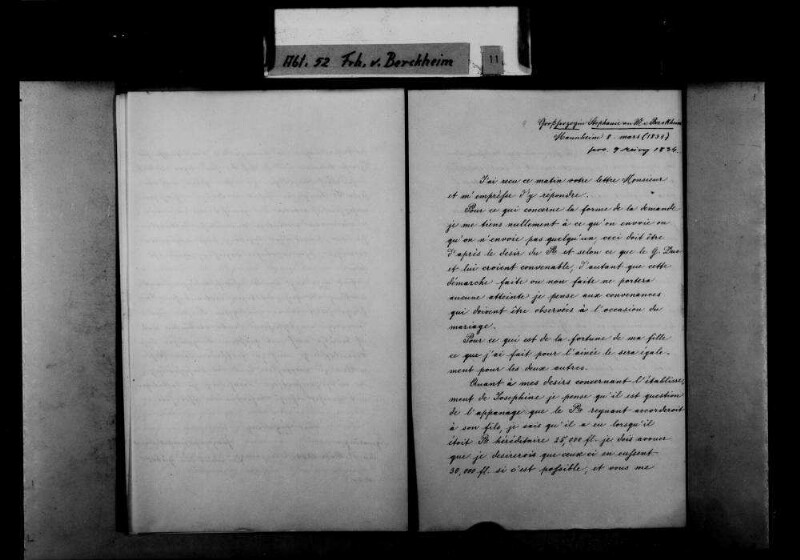 Abt. 52 Frh. v. Berckheim
11
Großherzogin Stephanie an M. v. Berckheim
Mannheim 8. mars (1834)
9 1834.
J'ai recu ce matin votre lettre Monsieur
et m'empresse d'y répondre.
Pour ce qui concerne la forme de la demande
je me tiens nullement à ce qu'on envoie ou
qu'on n'envoie pas quelqu'un, ceci doit être
d'après le desir du Pce et selon ce que le G. Duc
et lui croient convenable, d'autant que cette
démarche faite ou non faite ne portera
aucune atteinte je pense aux convenances
qui doivent être observées à l'occasion du
mariage.
Pour ce qui est de la fortune de ma fille
ce que j'ai fait pour l'ainée le sera égale-
ment pour les deux autres.
Quant à mes desirs concernant l'établisse-
ment de Josephine je pense qu'il est question
de l'appanage que le Pce regnant accorderoit
à son fils, je sais qu'il a eu lorsqu'il
étoit Pce héréditaire 25,000 fl. je dois avouer
que je desirerois que ceux ci en eussent
30,000 fl. si c'est possible, et vous me